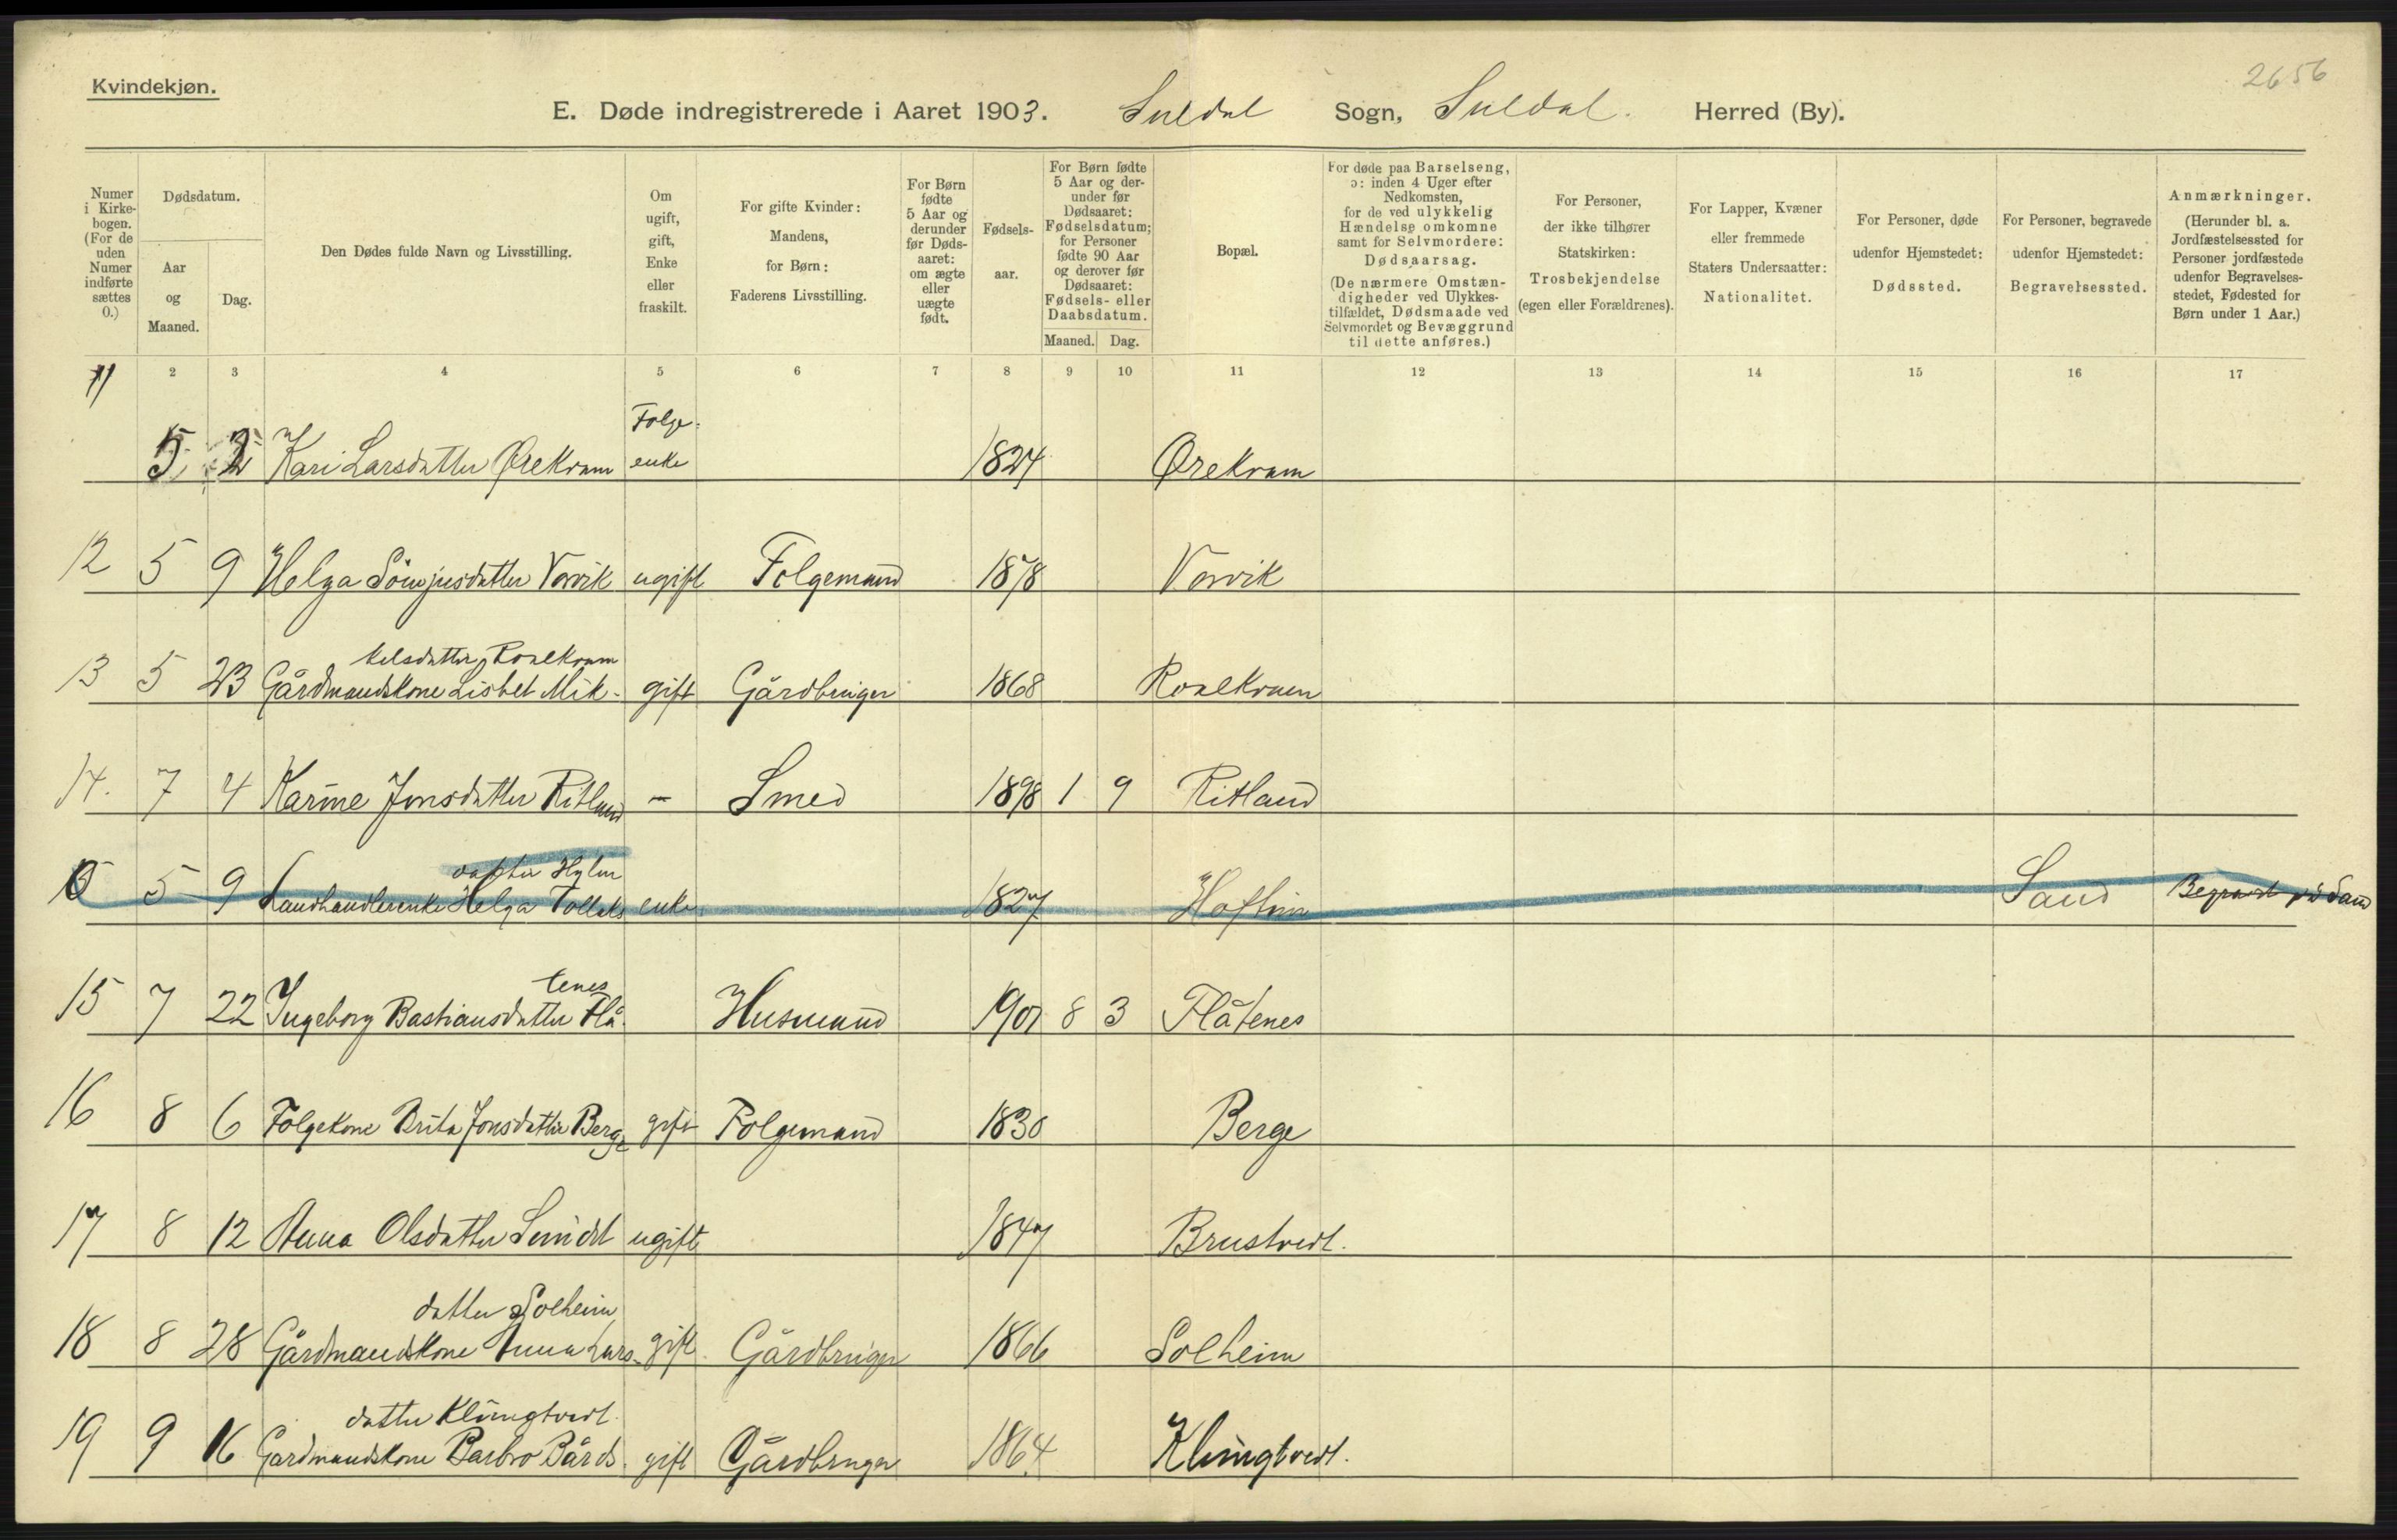 2656
Kvindekjøn.
E. Døde indregistrerede i Aaret 1903. Suldal Sogn, Suldal. Herred (By).
Numer i Kirkebogen. (For de uden Numer indførte sættes 0.)
Dødsdatum.
Aar og Maaned.
Dag.
Den Dødes fulde Navn og Livsstilling.
Om ugift, gift, Enke eller fraskilt.
For gifte Kvinder: Mandens, for Børn: Faderens Livsstilling.
For Børn fødte 5 Aar og derunder før Dødsaaret: om ægte eller uægte født.
Fødselsaar.
For Børn fødte 5 Aar og derunder før Dødsaaret: Fødselsdatum; for Personer fødte 90 Aar og derover før Dødsaaret: Fødsels- eller Daabsdatum.
Maaned. Dag.
Bopæl.
For døde paa Barselseng, ɔ: inden 4 Uger efter Nedkomsten, for de ved ulykkelig Hændelse omkomne samt for Selvmordere: Dødsaarsag. (De nærmere Omstændigheder ved Ulykkestilfældet, Dødsmaade ved Selvmordet og Bevæggrund til dette anføres.)
For Personer, der ikke tilhører Statskirken: Trosbekjendelse (egen eller Forældrenes).
For Lapper, Kvæner eller fremmede Staters Undersaatter: Nationalitet.
For Personer, døde udenfor Hjemstedet: Dødssted.
For Personer, begravede udenfor Hjemstedet: Begravelsessted.
Anmærkninger. (Herunder bl. a. Jordfæstelsessted for Personer jordfæstede udenfor Begravelsesstedet, Fødested for Børn under 1 Aar.)
2 3 4 5 6 7 8 9 10 11 12 13 14 15 16 17
11 5 2 Kari Larsdatter Ørekvam Folgeenke 1824 Ørekvam
12 5 9 Helga Vorvik ugift Folgemand 1878 Vorvik
13 5 23 Gårdmandskone Lisbet Mikkelsdatter Roalkvam gift Gårdbruger 1868 Roalkvam
14. 7 4 Karine Jonsdatter Ritland - Smed 1898 1 9 Ritland
0 5 9 Landhandlerenke Helga Tollaksdatter Hylen enke 1827 Sand Begravet på Sand
15 7 22 Ingeborg Bastiansdatter Flåtenes Husmand 1901 8 3 Flåtenes
16 8 6 Folgekone Brita Jonsdatter Berge gift Folgemand 1830 Berge
17 8 12 Anna Olsdatter ugift 1847 Brustvedt.
18 8 28 Gårdmandskone Anna Larsdatter Solheim gift Gårdbruger 1866 Solheim
19 9 16 Gardmandskone Barbro Bårdsdatter Klungtvedt. gift Gårdbruger 1864 Klungtvedt.